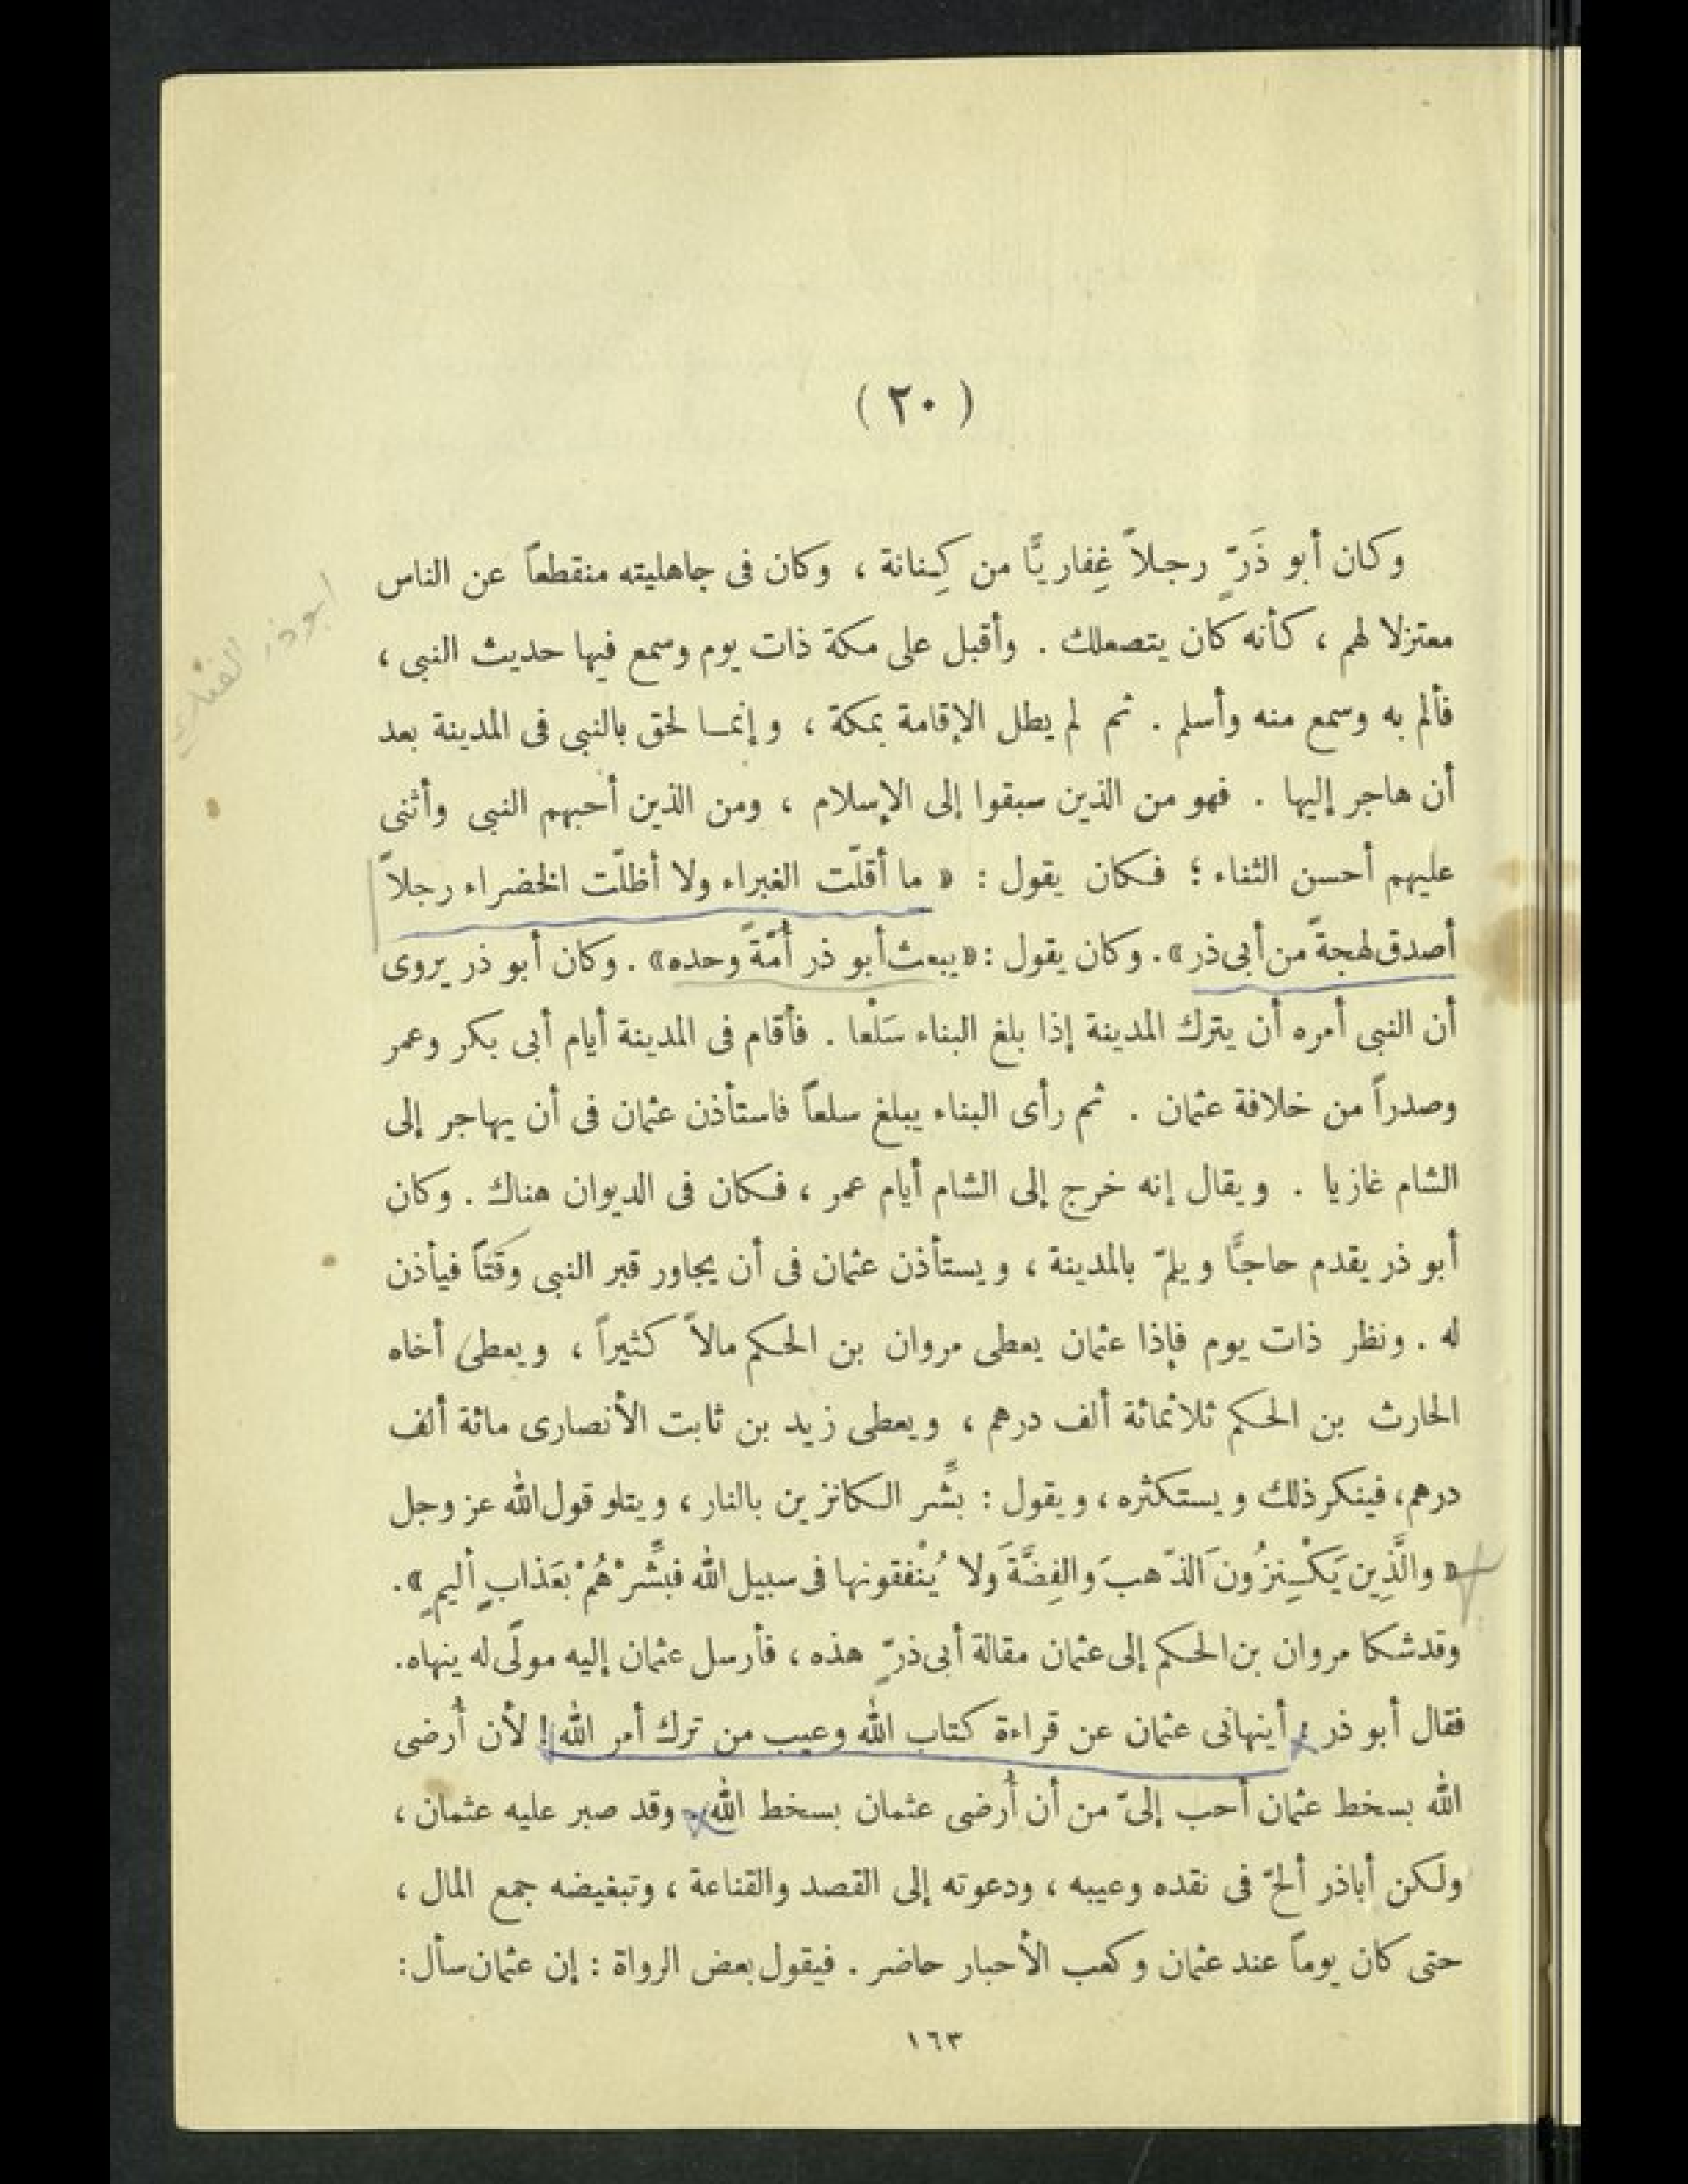 ( ٢٠ )
وكان أبو ذَرّ رجلاً غِفاريًّا من كِنانة ، وكان فى جاهليته منقطعاً عن الناس
معتزلا لهم ، كأنه كان يتصعلك . وأقبل على مكة ذات يوم وسمع فيها حديث النبى ،
فألم به وسمع منه وأسلم . ثم لم يطل الإقامة بمكة ، وإنما لحق بالنبى فى المدينة بعد
أن هاجر إليها . فهو من الذين سبقوا إلى الإسلام ، ومن الذين أحبهم النبى وأثنى
عليهم أحسن الثناء ؛ فكان يقول : « ما أقلّت الغبراء ولا أظلّت الخضراء رجلاً
أصدق لهجةً من أبى ذر » . وكان يقول : « يبعث أبو ذر أُمّةً وحده » . وكان أبو ذر يروى
أن النبى أمره أن يترك المدينة إذا بلغ البناء سَلْعا . فأقام فى المدينة أيام أبى بكر وعمر
وصدراً من خلافة عثمان . ثم رأى البناء يبلغ سلعاً فاستأذن عثمان فى أن يهاجر إلى
الشام غازيا . ويقال إنه خرج إلى الشام أيام عمر ، فكان فى الديوان هناك . وكان
أبو ذر يقدم حاجًّا ويلمّ بالمدينة ، ويستأذن عثمان فى أن يجاور قبر النبى وقتاً فيأذن
له . ونظر ذات يوم فإذا عثمان يعطى مروان بن الحكم مالاً كثيراً ، ويعطى أخاه
الحارث بن الحكم ثلاثمائة ألف درهم ، ويعطى زيد بن ثابت الأنصارى مائة ألف
درهم ، فينكر ذلك ويستكثره ، ويقول : بشّر الكانزين بالنار ، ويتلو قول الله عز وجل
« والَّذِين يَكْنِزُونَ الذّهبَ والفِضَّةَ ولا يُنْفقونها فى سبيل الله فبَشِّرْهُمْ بعَذابٍ أليمٍ » .
وقد شكا مروان بن الحكم إلى عثمان مقالة أبى ذرٍّ هذه ، فأرسل عثمان إليه مولًى له ينهاه .
فقال أبو ذر : أينهانى عثمان عن قراءة كتاب الله وعيب من ترك أمر الله ! لأن أُرضى
الله بسخط عثمان أحب إلىّ من أن أُرضى عثمان بسخط الله . وقد صبر عليه عثمان ،
ولكن أباذر ألحّ فى نقده وعيبه ، ودعوته إلى القصد والقناعة ، وتبغيضه جمع المال ،
حتى كان يوماً عند عثمان وكعب الأحبار حاضر . فيقول بعض الرواة : إن عثمان سأل :
١٦٣
ابو ذر